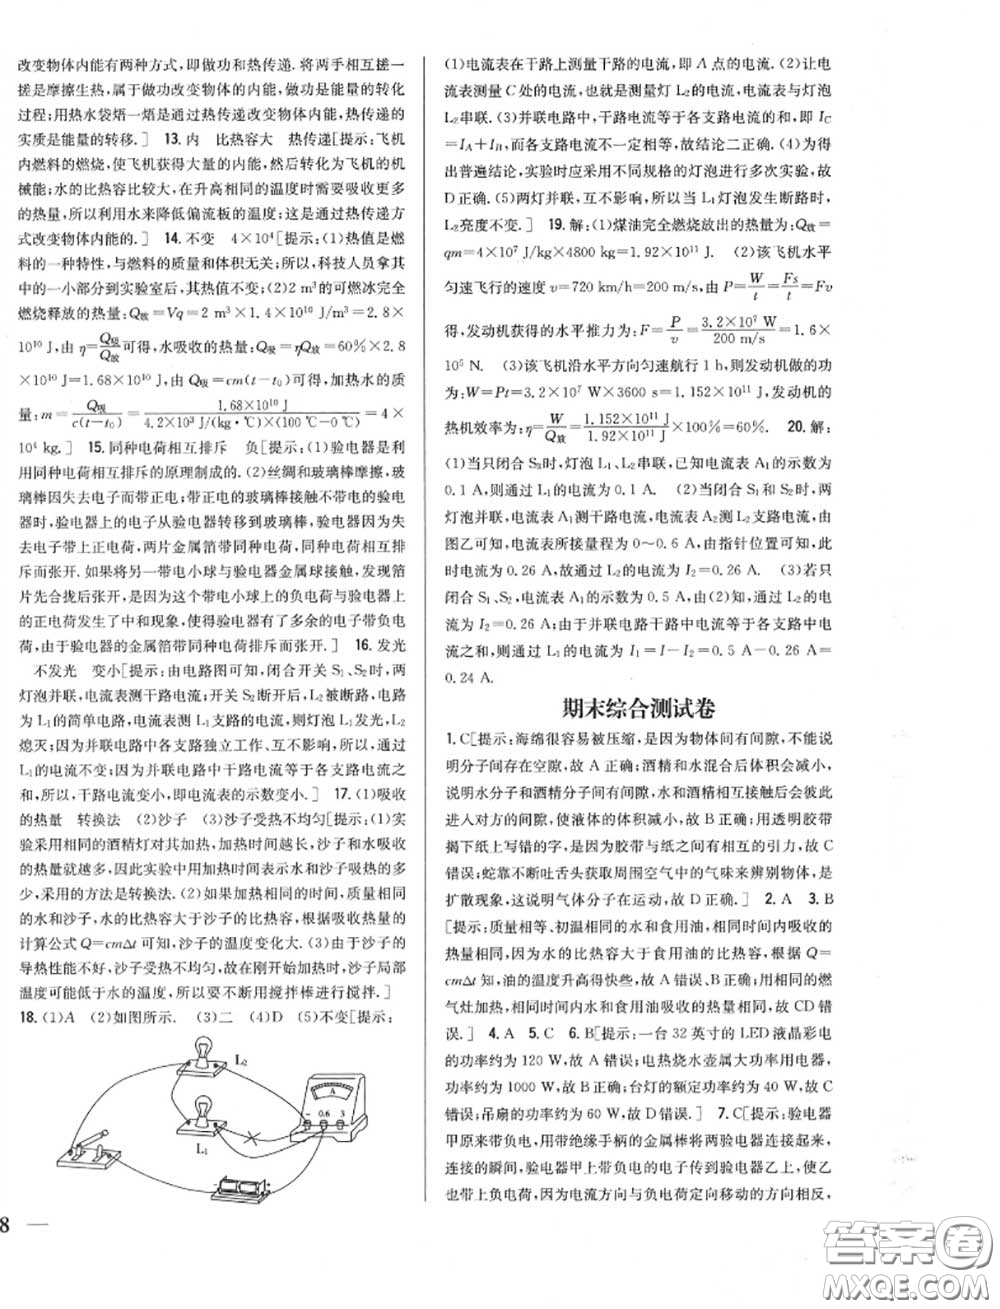 改变物体内能有两种方式,即做功和热传递. 将两手相互搓一
搓是摩擦生热,属于做功改变物体的内能,做功是能量的转化
过程;用热水袋焐一焐是通过热传递改变物体内能,热传递的
实质是能量的转移.] 13. 内 比热容大 热传递[提示:飞机
内燃料的燃烧,使飞机获得大量的内能,然后转化为飞机的机
械能;水的比热容比较大,在升高相同的温度时需要吸收更多
的热量,所以利用水来降低偏流板的温度;这是通过热传递方
式改变物体内能的.] 14. 不变 4×10⁴[提示:(1)热值是燃
料的一种特性,与燃料的质量和体积无关;所以,科技人员拿其
中的一小部分到实验室后,其热值不变;(2)2 m³的可燃冰完全
燃烧释放的热量:Q放=Vq=2 m³×1.4×10¹⁰ J/m³=2.8×
10¹⁰ J,由 η=Q吸/Q放可得,水吸收的热量:Q吸=ηQ放=60%×2.8
×10¹⁰ J=1.68×10¹⁰ J,由 Q吸=cm(t-t₀)可得,加热水的质
量:m=Q吸/c(t-t₀)=1.68×10¹⁰ J/4.2×10³ J/(kg·℃)×(100 ℃-0 ℃)=4×
10⁴ kg.] 15. 同种电荷相互排斥 负[提示:(1)验电器是利
用同种电荷相互排斥的原理制成的. (2)丝绸和玻璃棒摩擦,玻
璃棒因失去电子而带正电;带正电的玻璃棒接触不带电的验电
器时,验电器上的电子从验电器转移到玻璃棒,验电器因为失
去电子带上正电荷,两片金属箔带同种电荷,同种电荷相互排
斥而张开. 如果将另一带电小球与验电器金属球接触,发现箔
片先合拢后张开,是因为这个带电小球上的负电荷与验电器上
的正电荷发生了中和现象,使得验电器有了多余的电子带负电
荷,由于验电器的金属箔带同种电荷排斥而张开.] 16. 发光
不发光 变小[提示:由电路图可知,闭合开关 S₁、S₂ 时,两
灯泡并联,电流表测干路电流;开关 S₂断开后,L₂被断路,电路
为 L₁的简单电路,电流表测 L₁支路的电流,则灯泡 L₁发光,L₂
熄灭;因为并联电路中各支路独立工作、互不影响,所以,通过
L₁的电流不变;因为并联电路中干路电流等于各支路电流之
和,所以,干路电流变小,即电流表的示数变小.] 17. (1)吸收
的热量 转换法 (2)沙子 (3)沙子受热不均匀[提示:(1)实
验采用相同的酒精灯对其加热,加热时间越长,沙子和水吸收
的热量就越多,因此实验中用加热时间表示水和沙子吸热的多
少,采用的方法是转换法. (2)如果加热相同的时间,质量相同
的水和沙子,水的比热容大于沙子的比热容,根据吸收热量的
计算公式 Q=cmΔt 可知,沙子的温度变化大. (3)由于沙子的
导热性能不好,沙子受热不均匀,故在刚开始加热时,沙子局部
温度可能低于水的温度,所以要不断用搅拌棒进行搅拌.]
18. (1)A (2)如图所示. (3)二 (4)D (5)不变[提示:
L₂
A
- 0.6 3
L₁
8
(1)电流表在干路上测量干路的电流,即 A 点的电流. (2)让电
流表测量 C 处的电流,也就是测量灯 L₂的电流,电流表与灯泡
L₂串联. (3)并联电路中,干路电流等于各支路电流的和,即 I_C
=I_A+I_B,而各支路电流不一定相等,故结论二正确. (4)为得
出普遍结论,实验时应采用不同规格的灯泡进行多次实验,故
D 正确. (5)两灯并联,互不影响,所以当 L₁灯泡发生断路时,
L₂亮度不变.] 19. 解:(1)煤油完全燃烧放出的热量为:Q放=
qm=4×10⁷ J/kg×4800 kg=1.92×10¹¹ J. (2)该飞机水平
匀速飞行的速度 v=720 km/h=200 m/s,由 P=W/t=Fs/t=Fv
得,发动机获得的水平推力为:F=P/v=3.2×10⁷ W/200 m/s=1.6×
10⁵ N. (3)该飞机沿水平方向匀速航行 1 h,则发动机做的功
为:W=Pt=3.2×10⁷ W×3600 s=1.152×10¹¹ J,发动机的
热机效率为:η=W/Q放=1.152×10¹¹ J/1.92×10¹¹ J×100%=60%. 20. 解:
(1)当只闭合 S₂时,灯泡 L₁、L₂串联,已知电流表 A₁的示数为
0.1 A,则通过 L₁的电流为 0.1 A. (2)当闭合 S₁和 S₂时,两
灯泡并联,电流表 A₁测干路电流,电流表 A₂测 L₂支路电流,由
图乙可知,电流表所接量程为 0～0.6 A,由指针位置可知,此
时电流为 0.26 A,故通过 L₂的电流为 I₂=0.26 A. (3)若只
闭合 S₁、S₂,电流表 A₁的示数为 0.5 A,由(2)知,通过 L₂的电
流为 I₂=0.26 A;由于并联电路干路中电流等于各支路中电
流之和,则通过 L₁的电流为 I₁=I-I₂=0.5 A-0.26 A=
0.24 A.
期末综合测试卷
1. C[提示:海绵很容易被压缩,是因为物体间有间隙,不能说
明分子间存在空隙,故 A 正确;酒精和水混合后体积会减小,
说明水分子和酒精分子间有间隙,水和酒精相互接触后会彼此
进入对方的间隙,使液体的体积减小,故 B 正确;用透明胶带
揭下纸上写错的字,是因为胶带与纸之间有相互的引力,故 C
错误;蛇靠不断吐舌头获取周围空气中的气味来辨别物体,是
扩散现象,这说明气体分子在运动,故 D 正确.] 2. A 3. B
[提示:质量相等、初温相同的水和食用油,相同时间内吸收的
热量相同,因为水的比热容大于食用油的比热容,根据 Q=
cmΔt 知,油的温度升高得快些,故 A 错误、B 正确;用相同的燃
气灶加热,相同时间内水和食用油吸收的热量相同,故 CD 错
误.] 4. A 5. C 6. B[提示:一台 32 英寸的 LED 液晶彩电
的功率约为 120 W,故 A 错误;电热烧水壶属大功率用电器,
功率约为 1000 W,故 B 正确;台灯的额定功率约为 40 W,故 C
错误;吊扇的功率约为 60 W,故 D 错误.] 7. C[提示:验电器
甲原来带负电,用带绝缘手柄的金属棒将两验电器连接起来,
连接的瞬间,验电器甲上带负电的电子传到验电器乙,使乙
也带上负电荷,因为电流方向与负电荷定向移动的方向相反,
答案圈
MXQE.COM